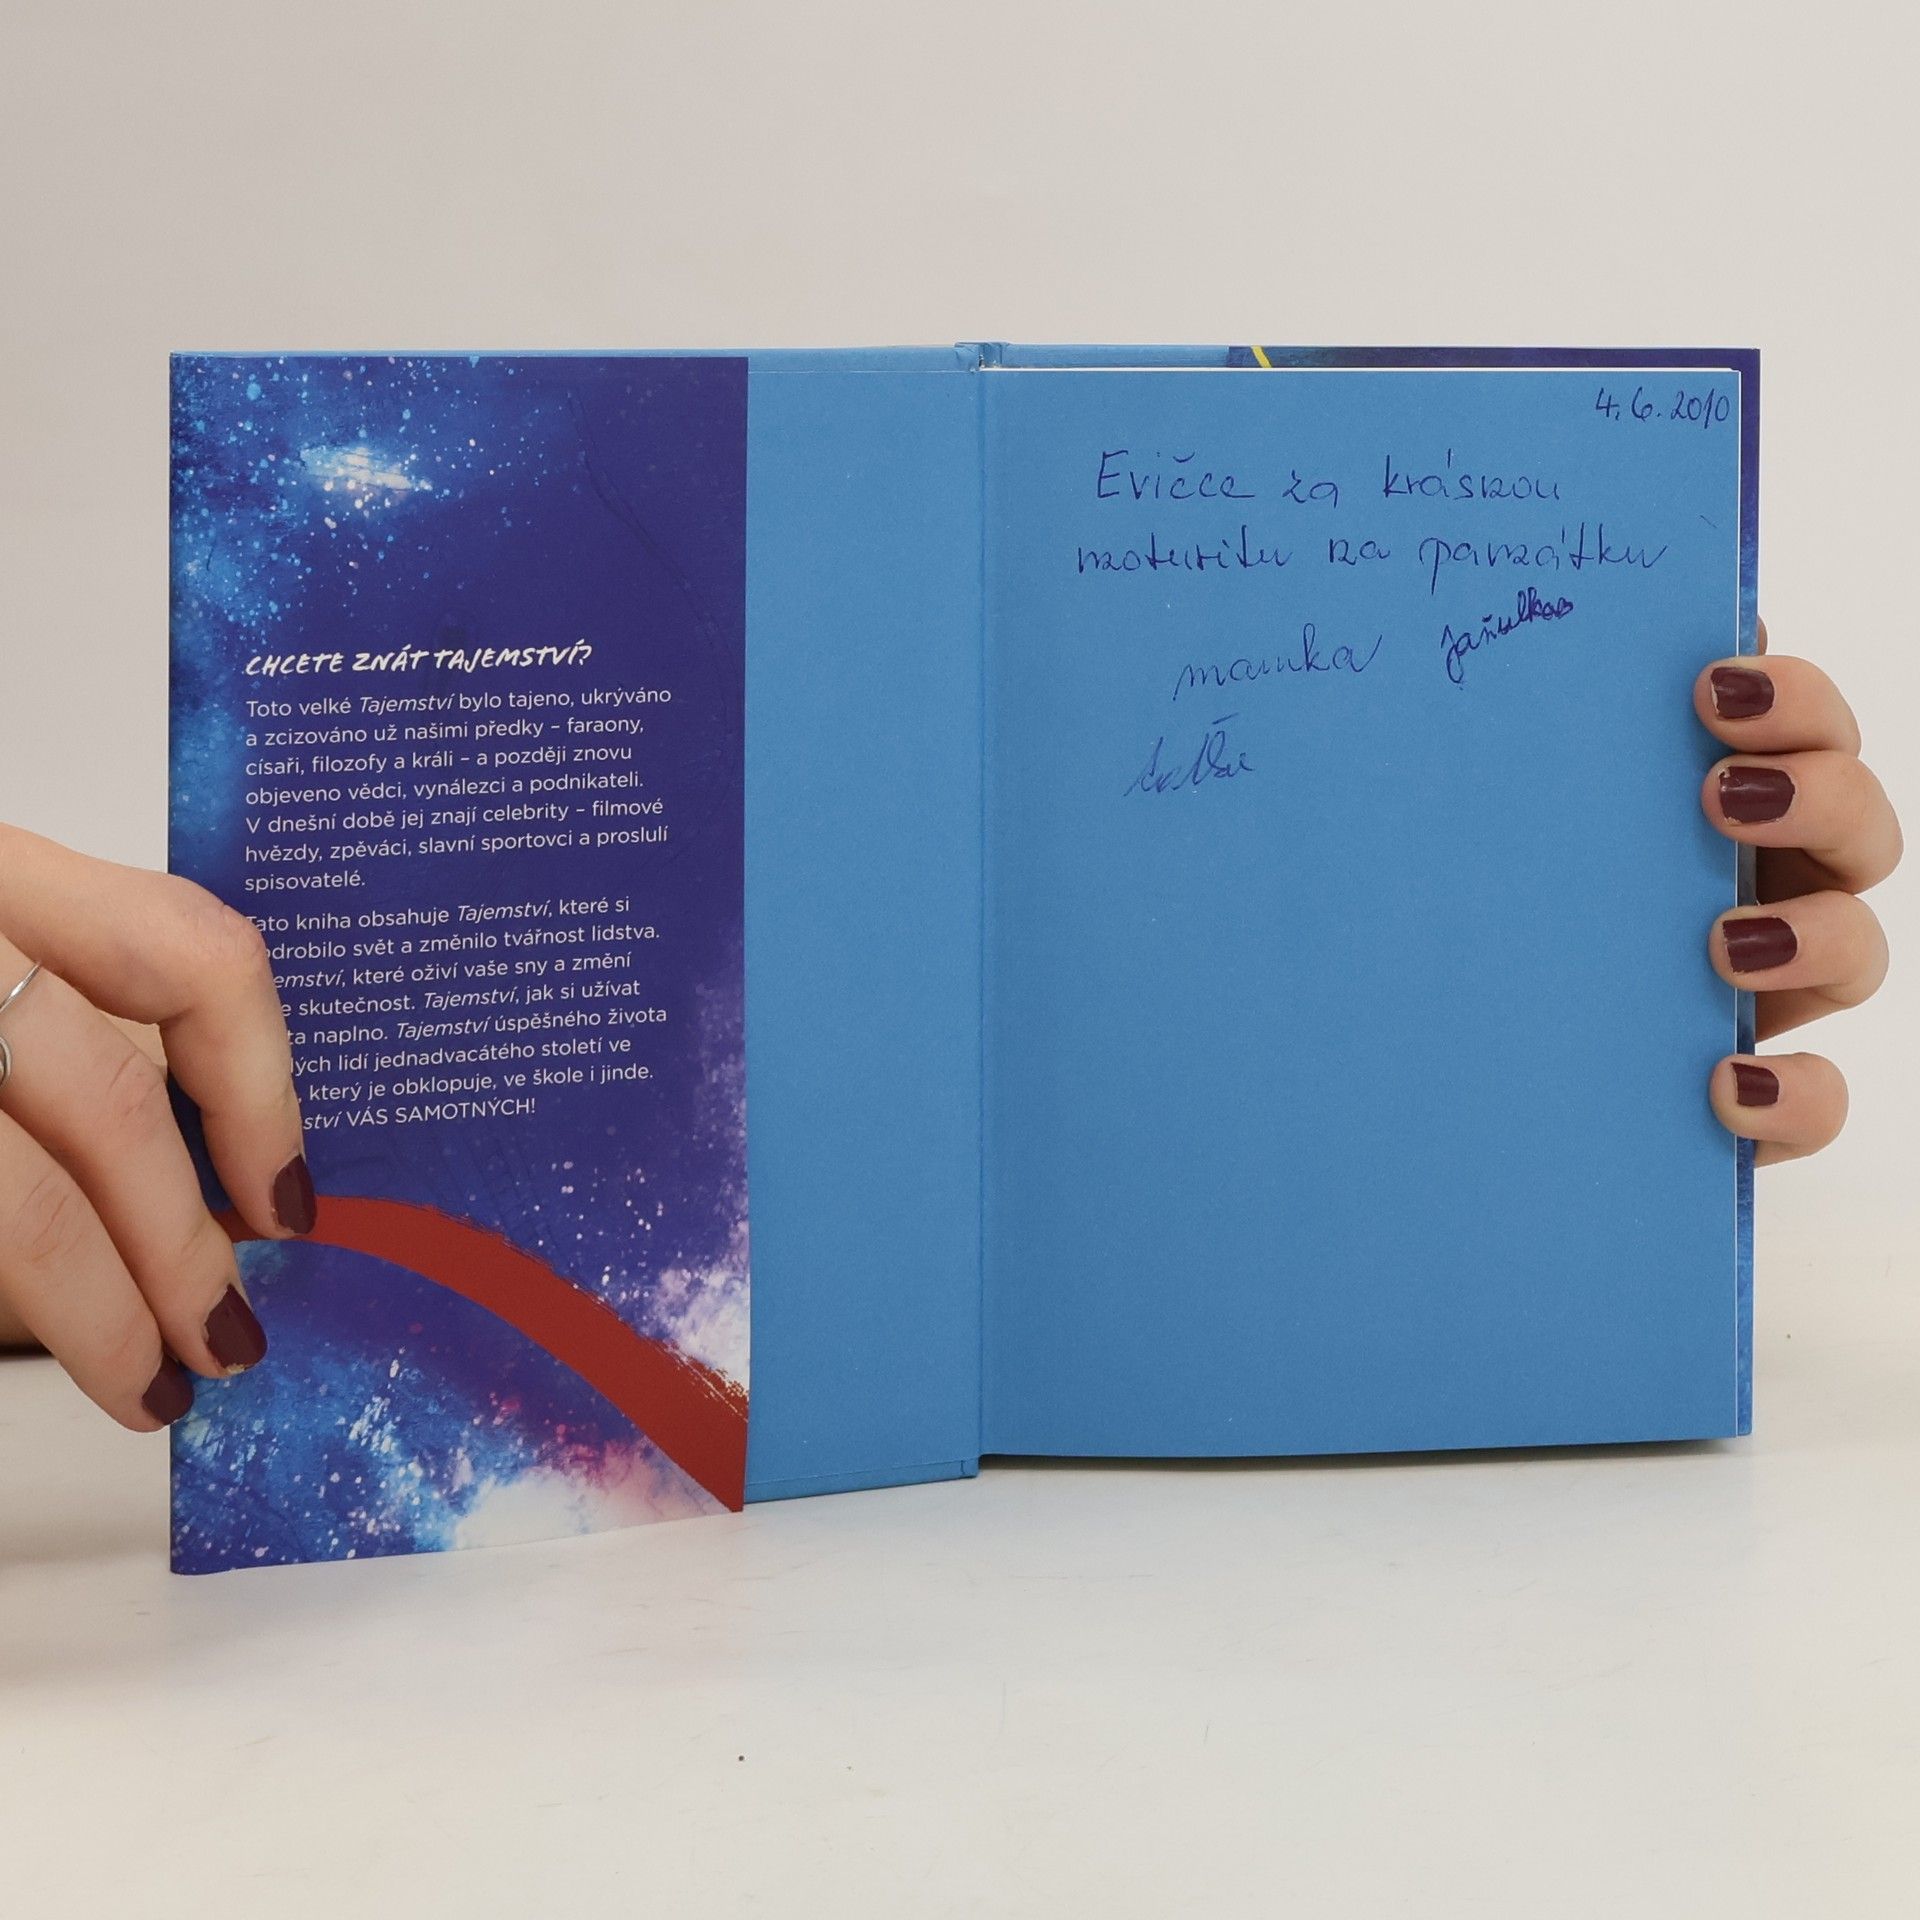 CHCETE ZNÁT TAJEMSTVÍ?
Toto velké Tajemství bylo tajeno, ukrýváno
a zcizováno už našimi předky – faraony,
císaři, filozofy a králi – a později znovu
objeveno vědci, vynálezci a podnikateli.
V dnešní době jej znají celebrity – filmové
hvězdy, zpěváci, slavní sportovci a proslulí
spisovatelé.
Tato kniha obsahuje Tajemství, které si
odrobilo svět a změnilo tvářnost lidstva.
emství, které oživí vaše sny a změní
e skutečnost. Tajemství, jak si užívat
ta naplno. Tajemství úspěšného života
lých lidí jednadvacátého století ve
, který je obklopuje, ve škole i jinde.
ství VÁS SAMOTNÝCH!
4. 6. 2010
Evičce za krásnou
maturitu na památku
mamka Jaňulka